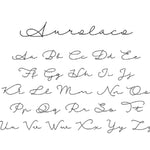 Aurolaco
Aa Bb Cc Dd Ee
Ff Gg Hh Ii Jj
Kk Ll Mm Nn Oo
Pp Qq Rr Ss Tt
Uu Vv Ww Xx Yy Zz